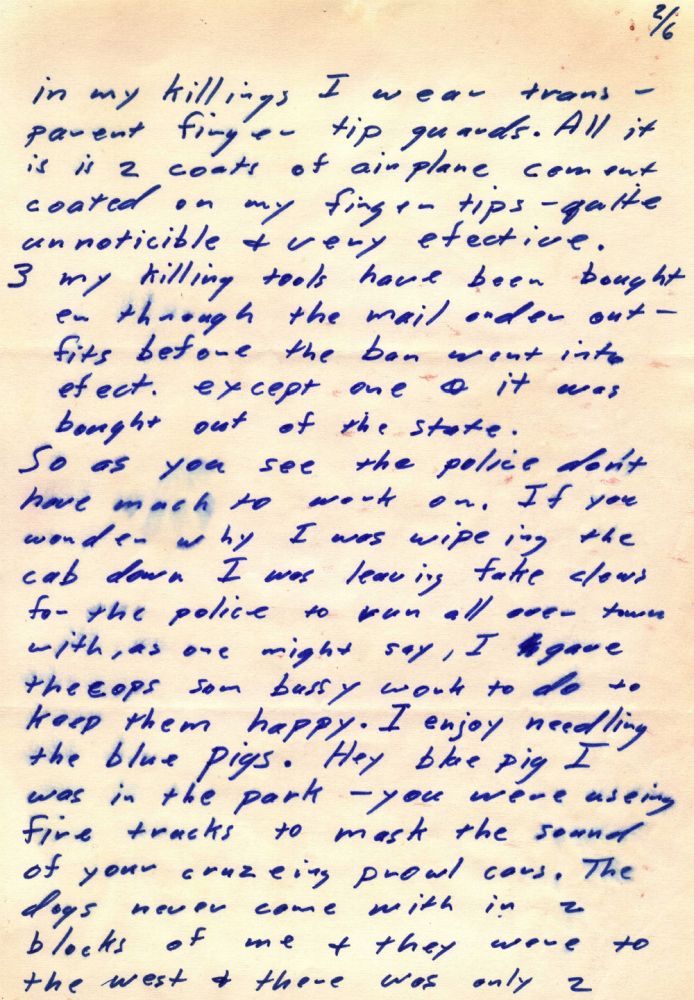 2/6
in my killings I wear trans -
parent finger tip guards. All it
is is 2 coats of airplane cement
coated on my finger tips - quite
unnoticible & very efective.
3 my killing tools have been bought
en through the mail order out -
fits before the ban went into
efect. except one & it was
bought out of the state.
So as you see the police don't
have much to work on. If you
wonder why I was wipeing the
cab down I was leaving fake clews
for the police to run all over town
with, as one might say, I gave
the cops som bussy work to do to
keep them happy. I enjoy needling
the blue pigs. Hey blue pig I
was in the park - you were useing
fire trucks to mask the sound
of your cruzeing prowl cars. The
dogs never came with in 2
blocks of me & they were to
the west & there was only 2